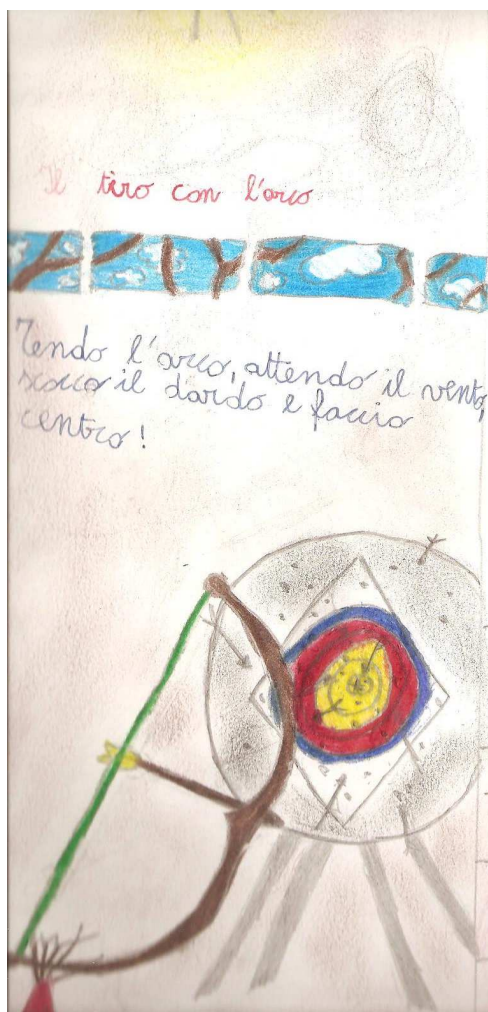 Il tiro con l'arco
Tendo l'arco, attendo il vento,
scocco il dardo e faccio
centro!